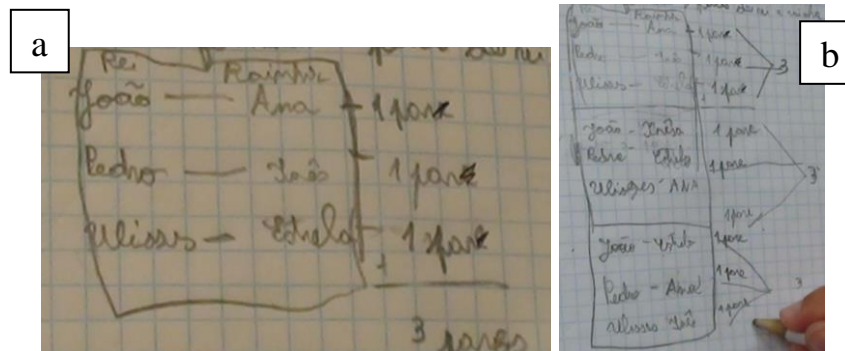 a
Rei Rainha
João — Ana — 1 par
Pedro — Inês — 1 par
Ulisses — Estrela — 1 par
+
3 pares
b
João — Ana — 1 par
Pedro — Inês — 1 par
3
Ulisses — Estrela 1 par
João - Inês 1 par
Pedro - Estrela 1 par
3
Ulisses - Ana
1 par
João - Estrela 1 par
Pedro - Ana 1 par
3
Ulisses Inês 1 par